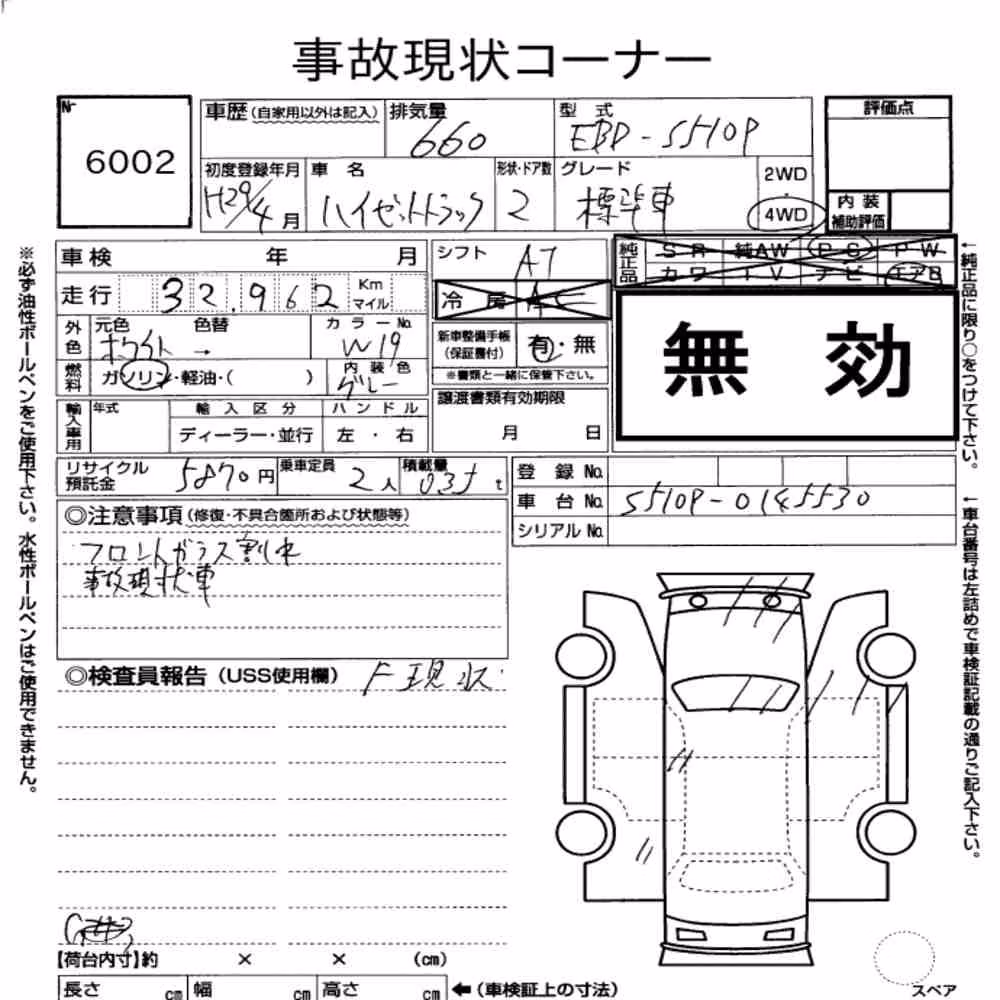 事故現状コーナー
Nr
6002
車歴(自家用以外は記入) 排気量 660 型式 EBD-S510P
初度登録年月 H29/4月 車名 ハイゼットトラック 形状・ドア数 2 グレード 標準車 2WD・4WD
評価点
内装補助評価
車検 年 月
走行 32,962 Km マイル
外色 元色 ホワイト 色替 → カラーNo. W19
燃料 ガソリン・軽油・( ) 内装色 グレー
輸入車用 年式 輸入区分 ハンドル
ディーラー・並行 左・右
シフト AT
冷房 AC
新車整備手帳(保証書付) 有・無
※書類と一緒に保管下さい。
譲渡書類有効期限
月 日
純正品 SR 純AW PS PW
カワ TV ナビ エアB
無効
リサイクル預託金 5870円 乗車定員 2人 積載量 035 t
登録No.
車台No. S510P-0145530
シリアルNo.
◎注意事項(修復・不具合箇所および状態等)
フロントガラス割れ
事故現状車
◎検査員報告(USS使用欄) F現状
【荷台内寸】約 × × (cm)
長さ cm 幅 cm 高さ cm ←(車検証上の寸法)
スペア
※必ず油性ボールペンをご使用下さい。水性ボールペンはご使用できません。
←純正品に限り○をつけて下さい。
←車台番号は左詰めで車検証記載の通りご記入下さい。